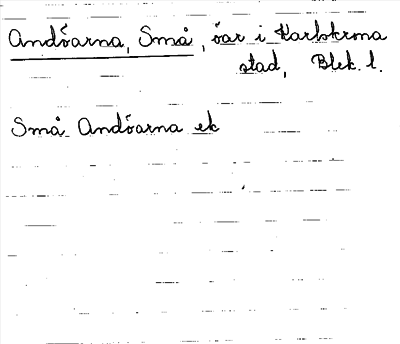 Andöarna, Små, öar i Karlskrona
stad, Blek. l.
Små Andöarna ek